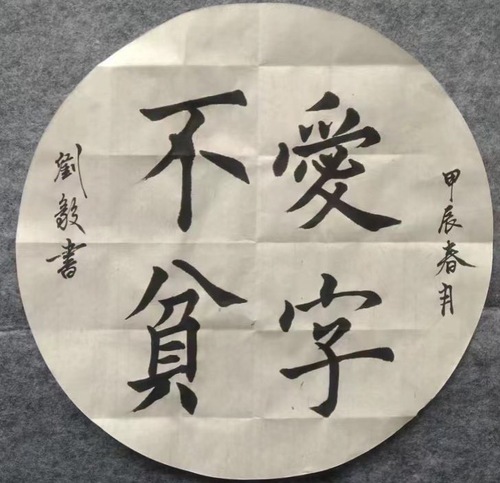 甲辰春月
愛字
不貧
劉毅書